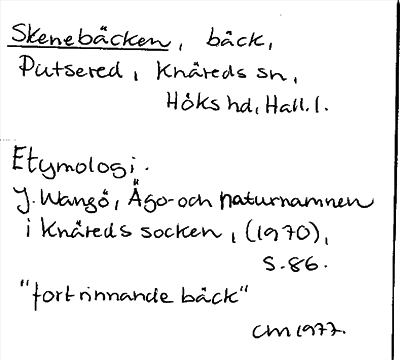 Skenebäcken, bäck,
Putsered, Knäreds sn,
Höks hd, Hall. l.
Etymologi.
J. Wangö, Ägo- och naturnamnen
i Knäreds socken, (1970),
s. 86.
"fort rinnande bäck"
CM 1977.